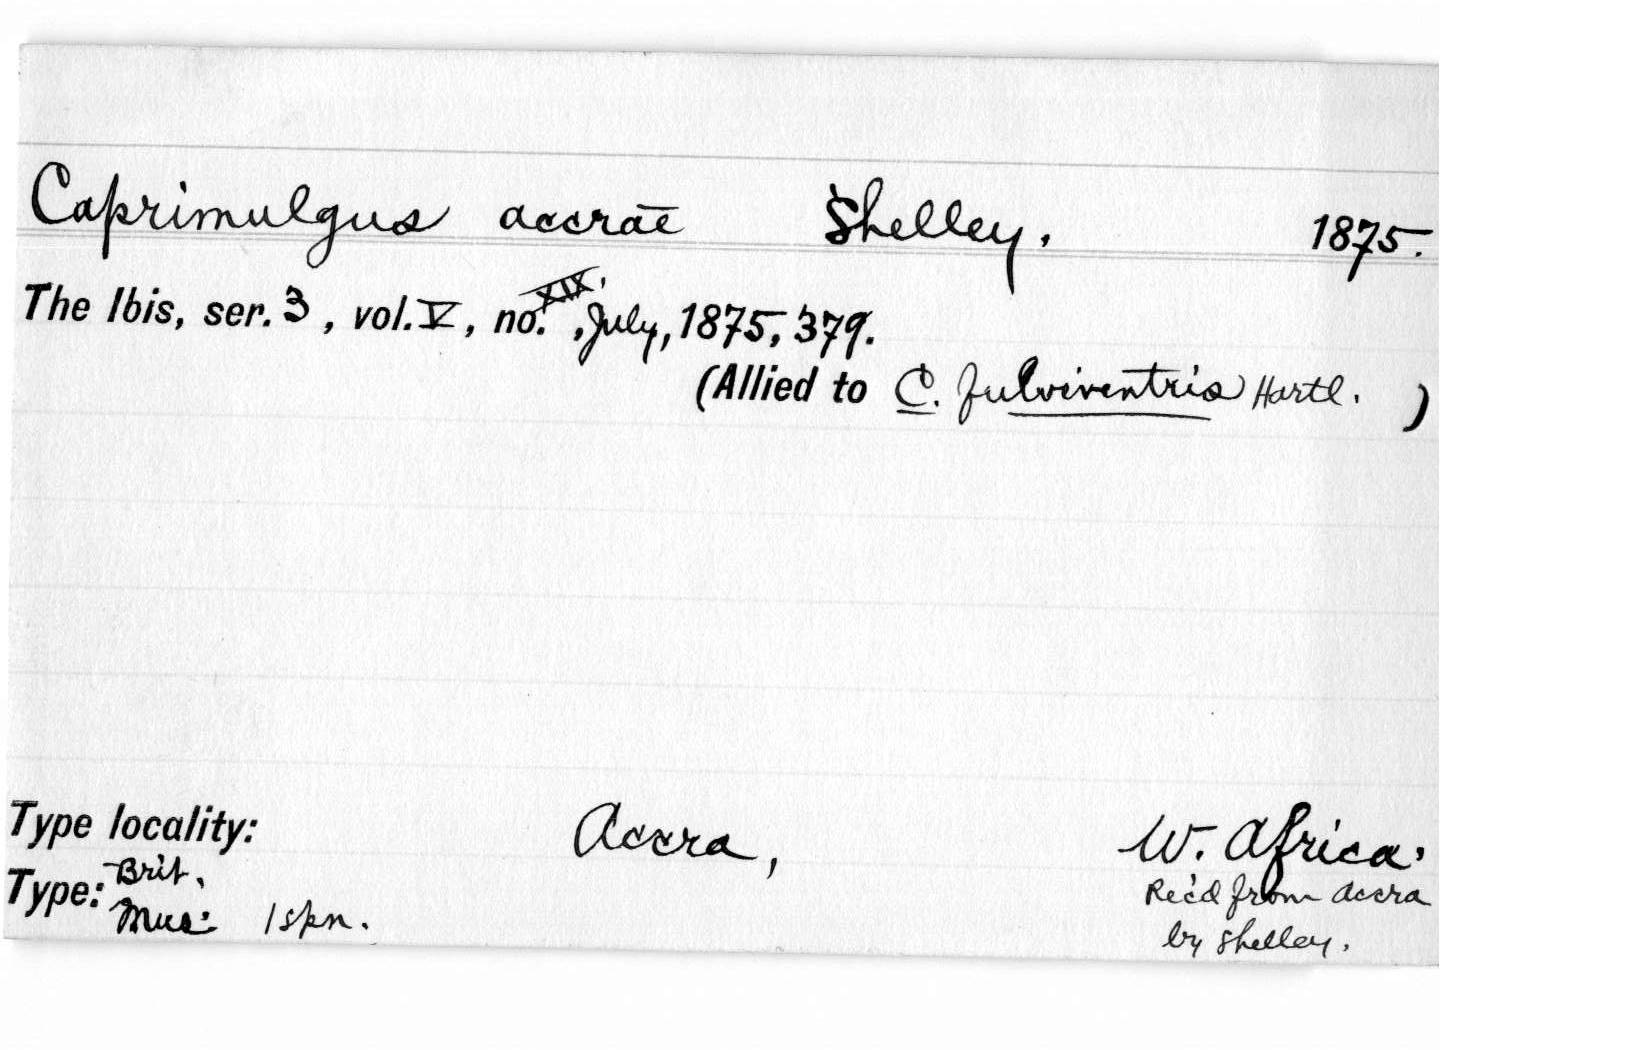 Caprimulgus accrae Shelley. 1875.
The Ibis, ser. 3, vol. V, no. XIX, July, 1875, 379.
(Allied to C. fulviventris Hartl. )
Type locality: Accra, W. Africa.
Type: Brit. Mus. 1 spn. Rec'd from Accra
by Shelley.